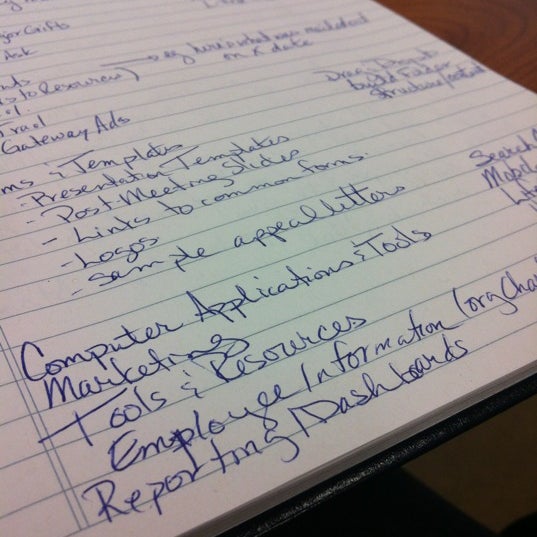 Gifts
Ask
to Resources) → eg here's what was mailed out
on X date
Email
Gateway Ads
Drag & Drop to
build Folder
structure/content
& Templates
- Presentation Templates
- Post Meeting Slides
- Links to common forms
- Logos
- Sample appeal letters
Search
Computer Applications & Tools
Marketing
Tools & Resources
Employee Information (org Cha
Reporting/Dashboards